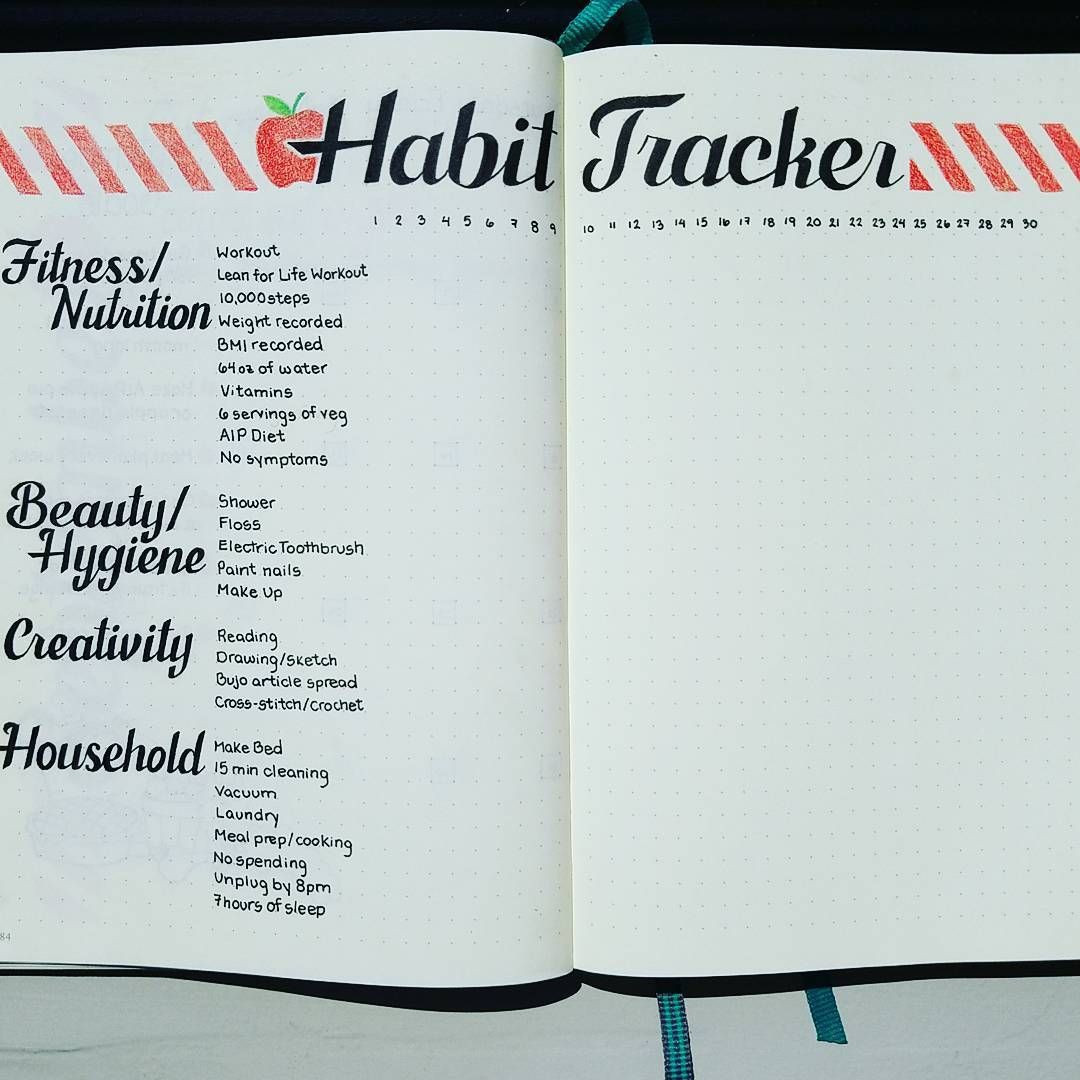 Habit Tracker
1 2 3 4 5 6 7 8 9 10 11 12 13 14 15 16 17 18 19 20 21 22 23 24 25 26 27 28 29 30
Fitness/
Nutrition
Workout
Lean for Life Workout
10,000 steps
Weight recorded
BMI recorded
64oz of water
Vitamins
6 servings of veg
AIP Diet
No symptoms
Beauty/
Hygiene
Shower
Floss
Electric Toothbrush
Paint nails
Make Up
Creativity
Reading
Drawing/Sketch
Bujo article spread
Cross-stitch/crochet
Household
Make Bed
15 min cleaning
Vacuum
Laundry
Meal prep/cooking
No spending
Unplug by 8pm
7 hours of sleep
84